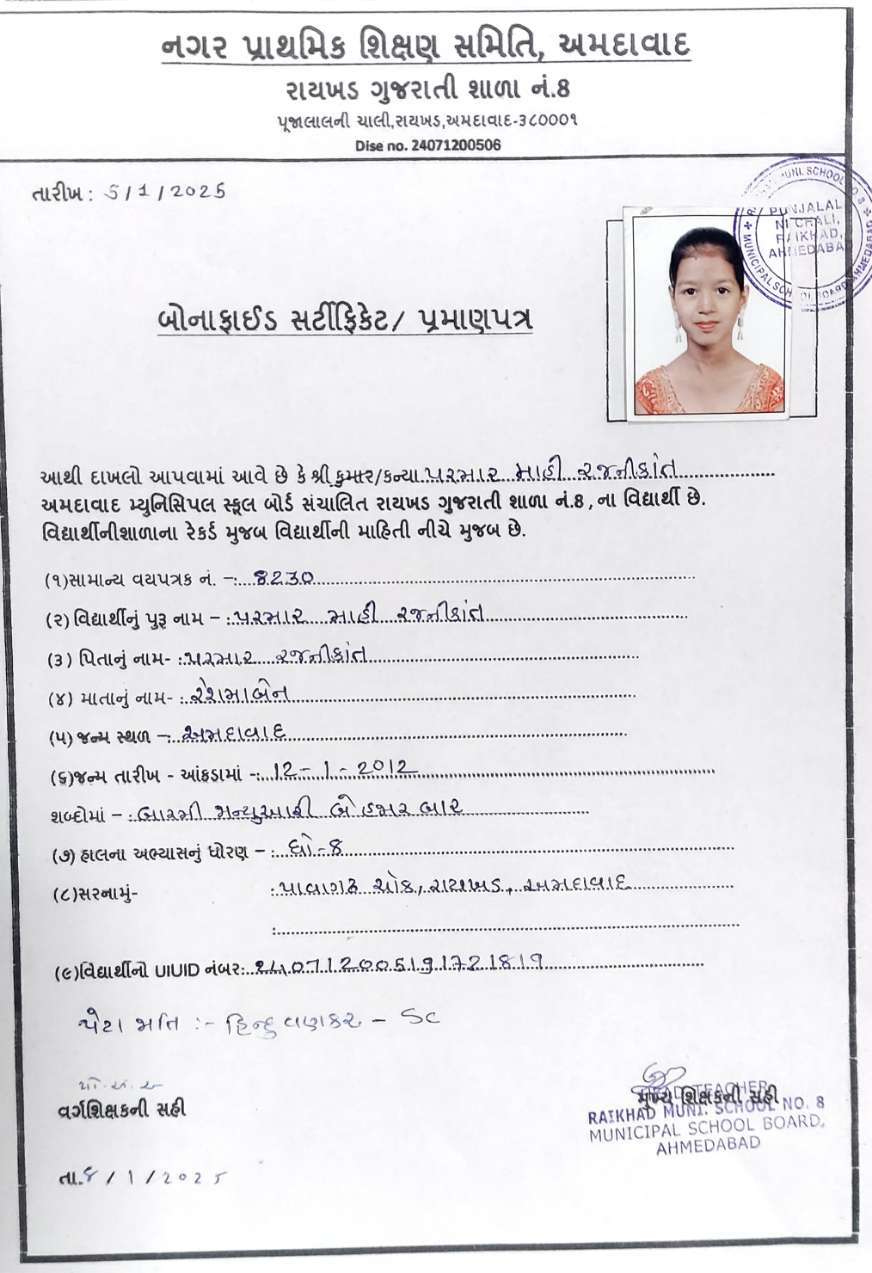 નગર પ્રાથમિક શિક્ષણ સમિતિ, અમદાવાદ
રાયખડ ગુજરાતી શાળા નં.8
પૂજાલાલની ચાલી,રાયખડ,અમદાવાદ-૩૮૦૦૦૧
Dise no. 24071200506
તારીખ : 5/1/2025
MUNI. SCHOOL NO. 8
PUNJALAL
NI CHALI,
RAIKHAD,
AHMEDABAD
MUNICIPAL SCHOOL BOARD AHMEDABAD
બોનાફાઈડ સર્ટીફિકેટ/ પ્રમાણપત્ર
આથી દાખલો આપવામાં આવે છે કે શ્રી કુમાર/કન્યા પરમાર માહી રજનીકાંત
અમદાવાદ મ્યુનિસિપલ સ્કૂલ બોર્ડ સંચાલિત રાયખડ ગુજરાતી શાળા નં.8 ,ના વિદ્યાર્થી છે.
વિદ્યાર્થીનીશાળાના રેકર્ડ મુજબ વિદ્યાર્થીની માહિતી નીચે મુજબ છે.
(૧)સામાન્ય વયપત્રક નં. –: 8230
(૨) વિદ્યાર્થીનું પુરૂ નામ – : પરમાર માહી રજનીકાંત
(૩) પિતાનું નામ- : પરમાર રજનીકાંત
(૪) માતાનું નામ- : રેશમાબેન
(૫) જન્મ સ્થળ –: અમદાવાદ
(૬)જન્મ તારીખ - આંકડામાં -: 12-1-2012
શબ્દોમાં – : બારમી જાન્યુઆરી બે હજાર બાર
(૭) હાલના અભ્યાસનું ધોરણ – : ધો-8
(૮)સરનામું- : પાવાગઢ ચોક, રાયખડ, અમદાવાદ
(૯)વિદ્યાર્થીનો UIUID નંબર:
પેટા જાતિ :- હિન્દુ વણકર - SC
વર્ગશિક્ષકની સહી
મુખ્ય શિક્ષકની સહી
HEAD TEACHER
RAIKHAD MUNI. SCHOOL NO. 8
MUNICIPAL SCHOOL BOARD,
AHMEDABAD
તા. /1/2025